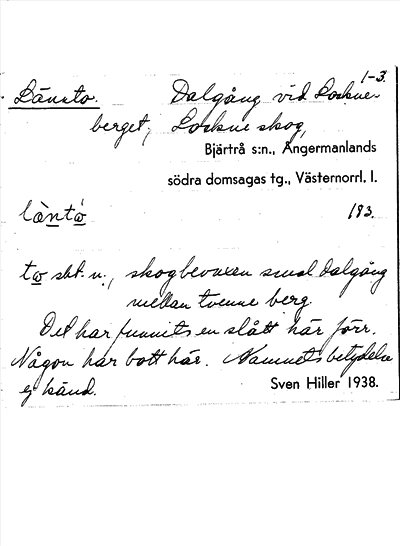 1-3.
Länsto. Dalgång vid Lockne-
berget, Lockne skog,
Bjärtrå s:n., Ångermanlands
södra domsagas tg., Västernorrl. l.
193.
sbt. n., skogbevuxen smal dalgång
mellan tvenne berg.
Det har funnits en slått här förr.
Någon har bott här. Namnets betydelse
ej känd. Sven Hiller 1938.